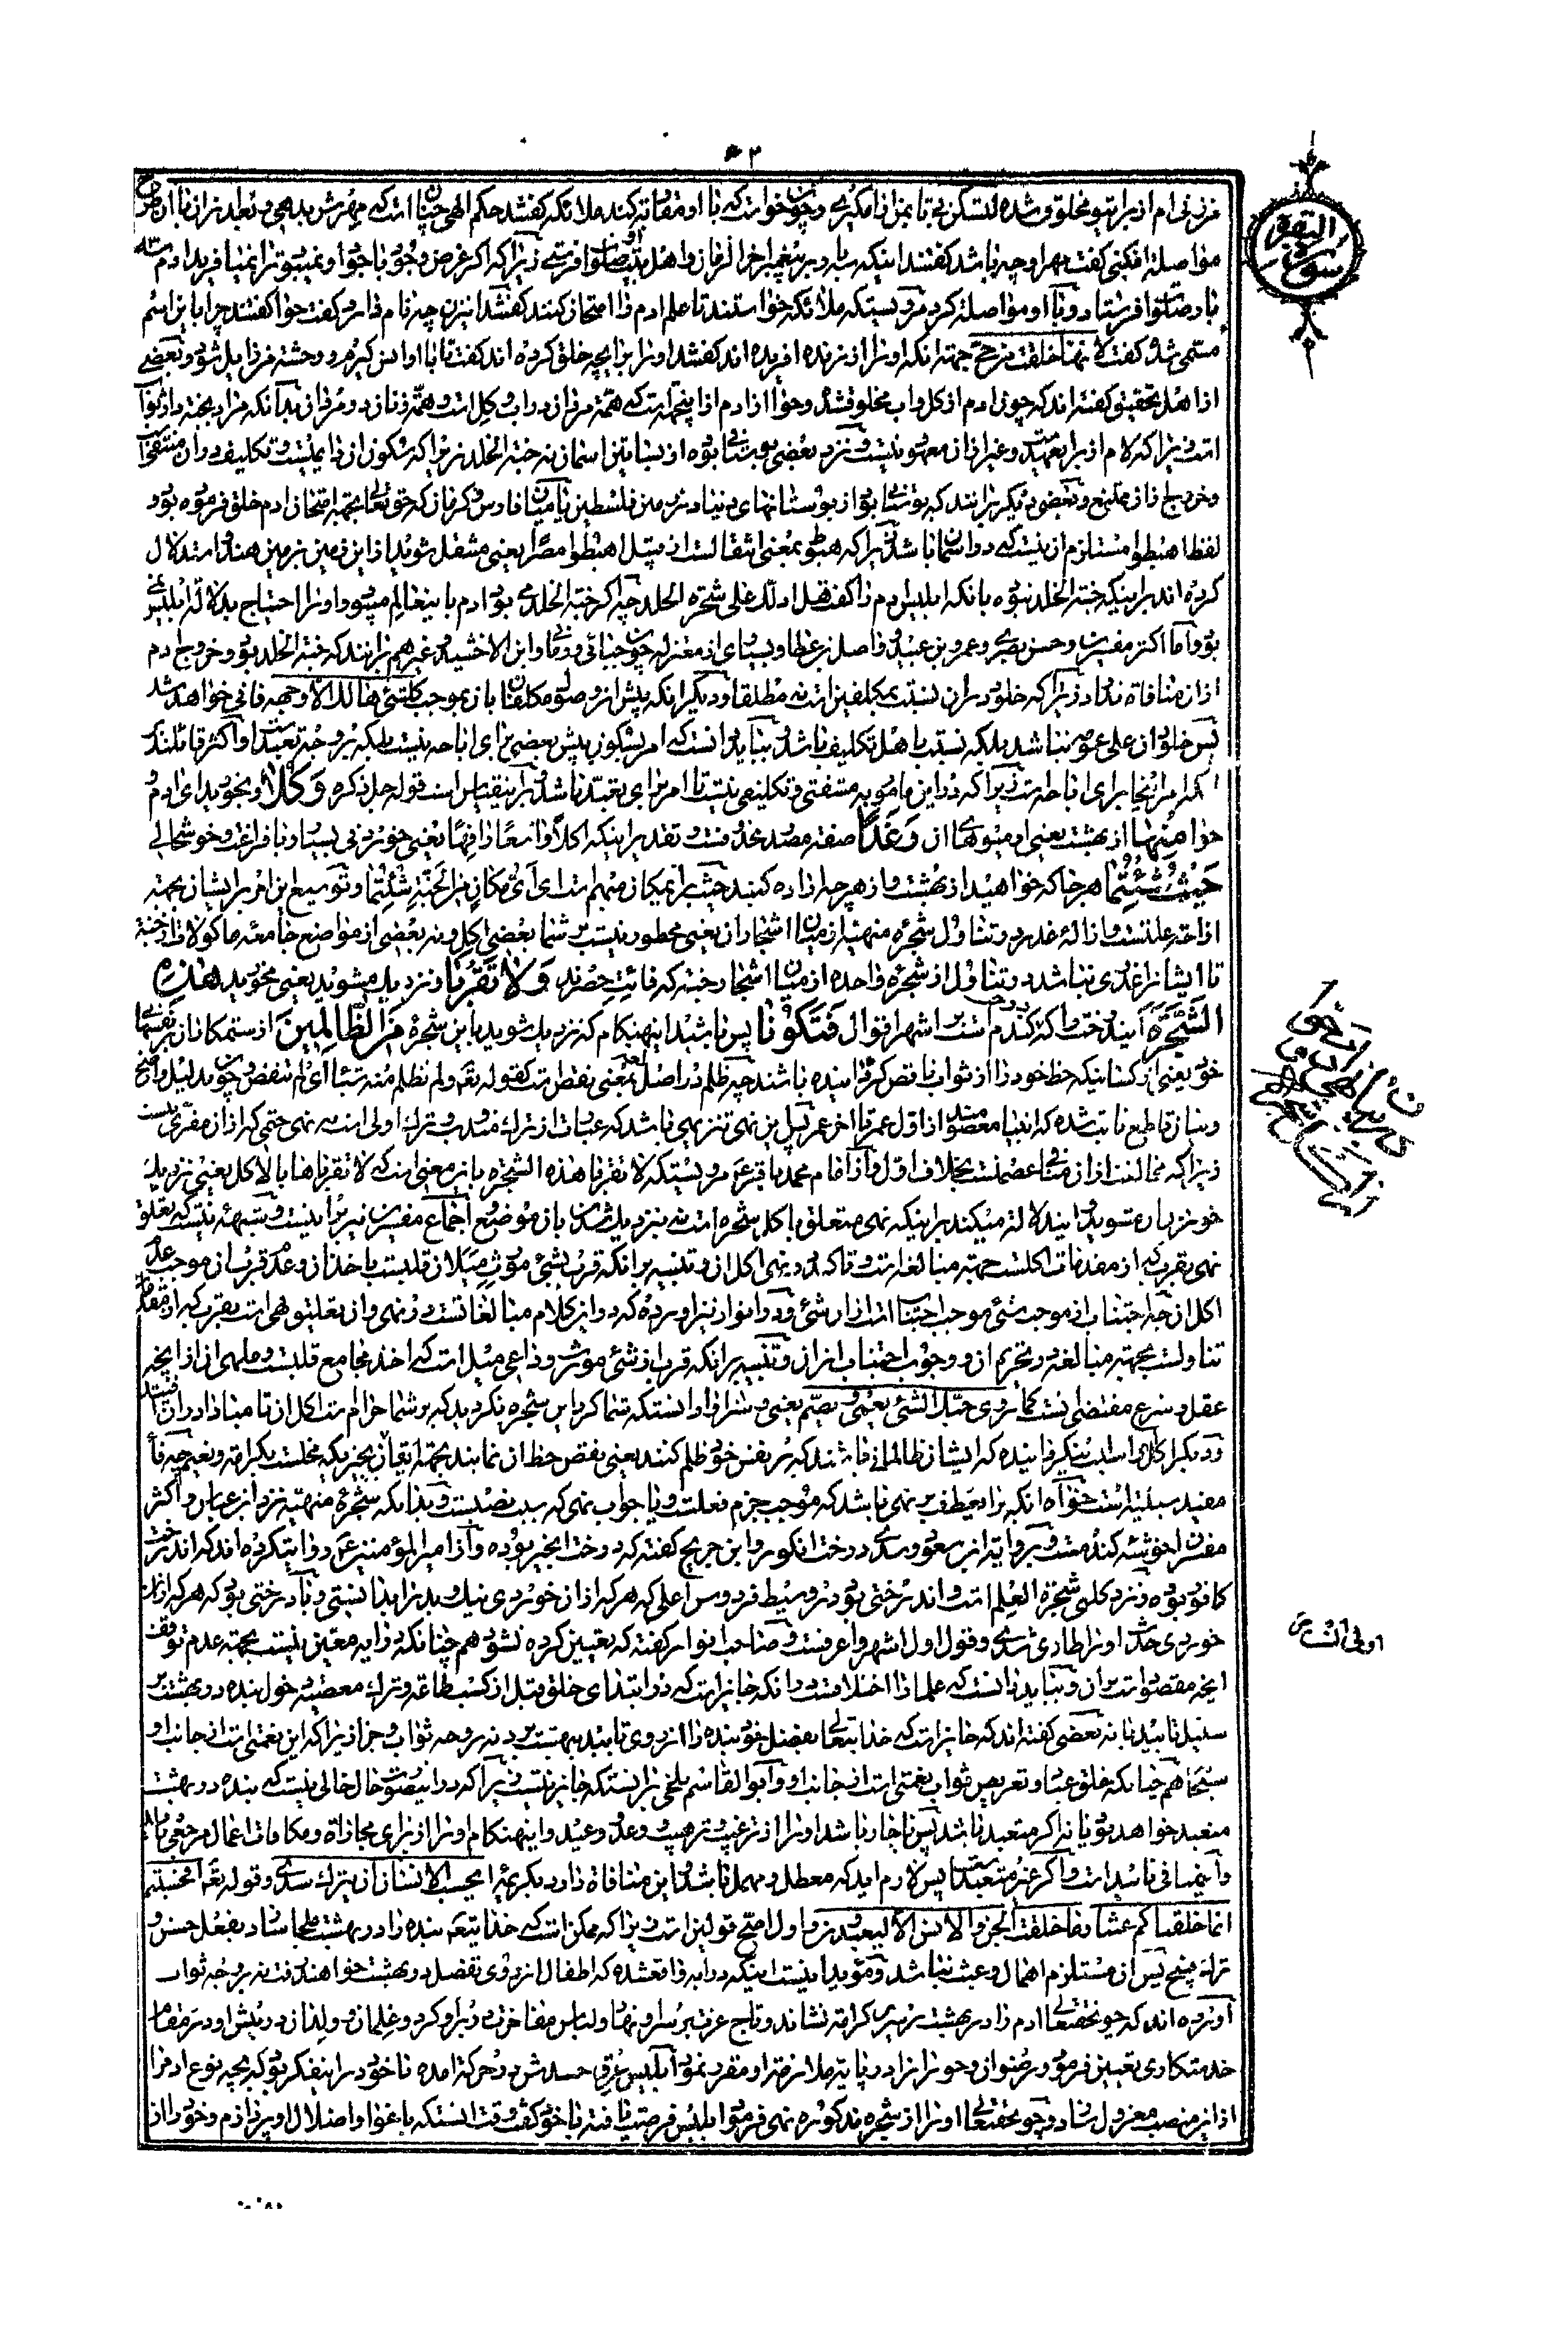 سورة البقرة
من زنی ام از برای تو مخلوق شده لتسکن بی تا بمن ارام گیری و چون خواست که با او مقاربه کند ملائکه گفتند حکم الهی چنان است که مهرش بدهی و بعد از آن با او
مواصله کنی گفت مهر او چه باشد گفتند اینکه سه بار بر پیغمبر اخر الزمان و اهل بیت او صلوات فرستی زیرا که اگر غرض وجود با جود او نمیبود ترا نمیافرید ادم سه
بار صلوات فرستاد و با او مواصلة کرد مرویست که ملائکه خواستند تا علم ادم را امتحان کنند گفتند این زن چه نام دارد گفت حوا گفتند چرا باین اسم
مسمی شد گفت لانها خلقت من حی جهة انکه او را از زنده افریده اند گفتند او را برای چه خلق کرده اند گفت تا با او انس گیرم و وحشت من زایل شود و بعضی
از اهل تحقیق گفته اند که چون ادم از گل و اب مخلوق شد و حوا از ادم از اینجهت است که همة مردان در اب و گل است و همة زنان در مردان بدانکه مراد بجنة دار ثواب
است زیرا که لام از برای عهد است و غیر از ان معهود نیست و نزد بعضی بوستانی بوده از بساتین اسمان نه جنة الخلد زیرا که سکون ان دایمیست و تکلیف در ان منتفی
و خروج از ان ممتنع و بعضی دیگر برانند که بوستانی بود از بوستانهای دنیا در زمین فلسطین یا میان فارس و کرمان که حق تعالی بجهة امتحان ادم خلق فرموده بود
لفظ اهبطوا مستلزم ان نیست که در اسمان باشد زیرا که هبوط بمعنی انتقالست از قبیل اهبطوا مصرا یعنی منتقل شوید از این زمین بزمین هند و استدلال
کرده اند بر اینکه جنة الخلد نبوده بانکه ابلیس ادم را گفت هل ادلک علی شجرة الخلد چه اگر جنة الخلد می بود ادم باین عالم میبود و او را احتیاج بدلالة ابلیس نمی
بود و اما اکثر مفسرین و حسن بصری و عمرو بن عبید و واصل بن عطا و بسیاری از معتزله چون جبائی و رمانی و ابن الاخشید و غیرهم برانند که جنة الخلد بود و خروج ادم
از ان منافاة ندارد زیرا که خلود در ان نسبت بمکلفین است نه مطلقا و دیگر انکه پیش از وصول مکلفان بان بموجب کل شئ هالک الا وجهه فانی خواهد شد
پس خلود ان علی عمومه نباشد بلکه نسبت باهل تکلیف باشد و بباید دانست که امر بسکون پیش بعضی برای اباحه نیست بلکه بر وجه تعبد است و اکثر قائلند
که امر اینجا برای اباحه است زیرا که در این مامور به مشقتی و تکلیفی نیست تا امر برای تعبد باشد و بر این قیاس است قوله جل ذکره وَكُلا و بخورید ای ادم و
حوا مِنْها از بهشت یعنی از میوهای ان رَغَداً صفة مصدر محذوفست و تقدیر اینکه اکلا واسعا رافها یعنی خوردنی بسیار و با فراغت و خوشحالی
حَيْثُ شِئْتُما هر جا که خواهید از بهشت و از هر چه اراده کنید حیث برای مکان مبهم است ای ای مکان من الجنة شئتما و توسیع این امر بر ایشان بجهة
ازاحة علتست و ازاله عذر در تناول شجره منهیه از میان اشجار ان یعنی محظور نیست بر شما بعضی اکل و نه بعضی از مواضع جامعه ماکولات از جنة
تا ایشان را عذری نباشد در تناول از شجره واحده از میان اشجار جنة که فائت حصرند وَلا تَقْرَبا و نزدیک مشوید یعنی مخورید هذِهِ
الشَّجَرَةَ این درخت را که گندم است بر اشهر اقوال فَتَكُونا پس باشید اینهنگام که نزدیک شوید باین شجره مِنَ الظَّالِمِينَ از ستمکاران بر نفسهای
خود یعنی از کسانیکه حظ خود را از ثواب ناقص گرداننده باشند چه ظلم در اصل لغت بمعنی نقص است کقوله تع ولم تظلم منه شیئا ای لم تنقص و چون بدلیل واضح
و برهان قاطع ثابت شده که انبیا معصومند از اول عمر تا اخر عمر پس این نهی تنزیهی باشد که عبارت از ترک مندوب و ترک اولی است نه نهی حتمی که از ان مفری نیست
زیرا که مخالفت از ان منافی عصمتست بخلاف اول و از امام محمد باقر ع مرویست که لا تقربا هذه الشجرة باین معنی است که لا تقرباها بالاکل یعنی نزدیک
خوردن ان مشوید و این دلالة میکند بر اینکه نهی متعلق باکل شجره است نه بنزدیک شدن بان موضع اجماع مفسرین نیز بر اینست و شبهه نیست که تعلق
نهی بقرب که از مقدمات اکلست جهة مبالغه است و تاکید در نهی اکل ان و تنبیه بر انکه قرب بشئ مورث میل ان قلبست باخذ ان و عدم قرب ان موجب عدم
اکل ان چه اجتناب از موجب شئ موجب اجتنابست از ان شئ و در انوار نیز اورده که در این کلام مبالغاتست در نهی و ان تعلیق نهی است بقرب که از مقدمات
تناولست بجهة مبالغه در تحریم ان و وجوب اجتناب از ان و تنبیه بر انکه قرب از شئ مورث و داعی میل است که اخذ مجامع قلبست و ملهی ان از انچه
عقل و شرع مقتضی انست کما روی حبک الشئ یعمی و یصم
مفید سببیة است خواه انکه بر او عطف بر نهی باشد که موجب جزم فعلست و یا جواب نهی که سبب نصبست و بدانکه شجره منهیه نزد ابن عباس و اکثر
مفسران خوشه گندمست و بروایت ابن مسعود و سدی درخت انگور و ابن جریج گفته که درخت انجیر بوده و از امیر المؤمنین ع روایت کرده اند که ان درخت
کافور بوده و نزد کلبی شجرة العلم است و ان درختی بود در وسط فردوس اعلی که هر که از ان خوردی نیک و بد را بدانستی و یا درختی بود که هر که از ان
خوردی حدث او را طاری شدی و قول اول اشهر و اعرفست و صاحب انوار گفته که تعیین کرده نشود همچنانکه در ایه معین نیست بجهة عدم توقف
انچه مقصود است بر ان و بباید دانست که علما را اختلافست در انکه جایز است که در ابتدای خلق قبل از کسب طاعة و ترک معصیة دخول بنده در بهشت بر
سبیل تابید یا نه بعضی گفته اند که جایز است که خدایتعالی بفضل خود بنده را از روی تابید بهشت برد نه بر وجه ثواب و جزا زیرا که این نعمتی است از جانب او
سبحانه همچنانکه خلق عباد و تعریض ثواب نعمتی است از جانب او و ابو القاسم بلخی برانست که جایز نیست زیرا که در اینصورت حال خالی نیست که بنده در بهشت
متعبد خواهد بود یا نه اگر متعبد باشد پس ناچار باشد او را از ترغیب و ترهیب و وعد و وعید و اینهنگام او را از برای مجازاة و مکافات اعمال مرجعی باید
و این منافی تابید است و اگر غیر متعبد است پس لازم اید که معطل و مهمل باشد و این منافاة دارد بکریمه ایحسب الانسان ان یترک سدی و قوله تعه افحسبتم
انما خلقناکم عبثا و ما خلقت الجن والانس الا لیعبدون و اول اصح قولین است زیرا که ممکن است که خدایتعه بنده را در بهشت ملجا سازد بفعل حسن و
ترک قبیح پس ان مستلزم اهمال و عبث نباشد و مؤید اینست اینکه در ایه واقعشده که اطفال از روی تفضل در بهشت خواهند رفت نه بر وجه ثواب
اورده اند که چون حقتعالی ادم را در بهشت بر سریر کرامة نشاند و تاج عزت بر سر او نهاد و لباس مفاخرت در بر او کرد و غلمان و ولدان در پیش او در مقام
خدمتکاری تعیین فرمود و رضوان و حور را در پایه ملازمة او مقرر نمود ابلیس عرق حسدش در حرکة امده با خود در این فکر بود که بچه نوع ادم را
از این منصب معزول سازد و چون حقتعالی او را از شجره مذکوره نهی فرمود ابلیس فرصت یافته با خود گفت وقت انست که باغوا و اضلال او پردازم و خود را از